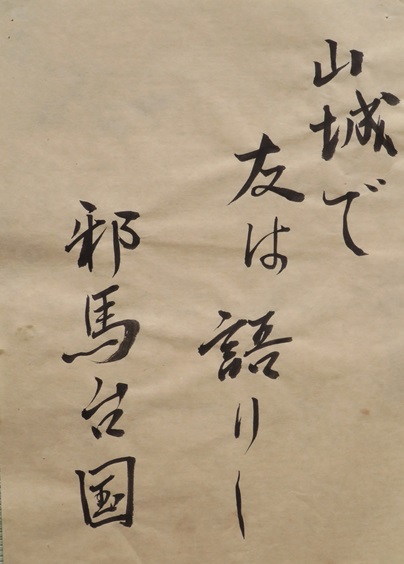 山城で
友は語りし
邪馬台国